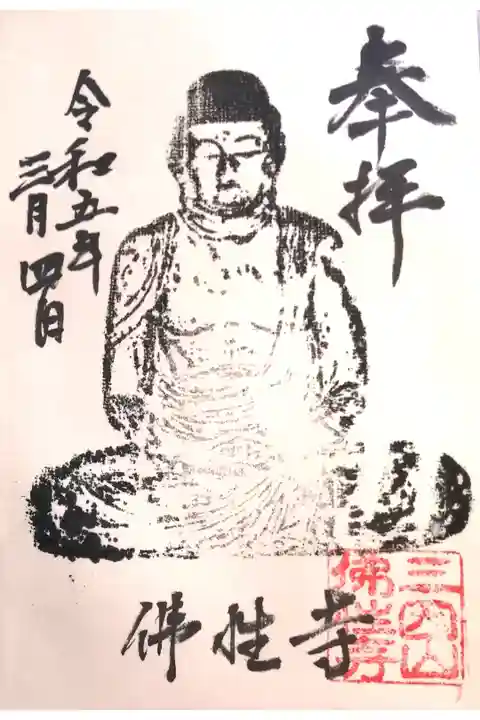 奉拝
令和五年
三月四日
佛性寺
佛性寺